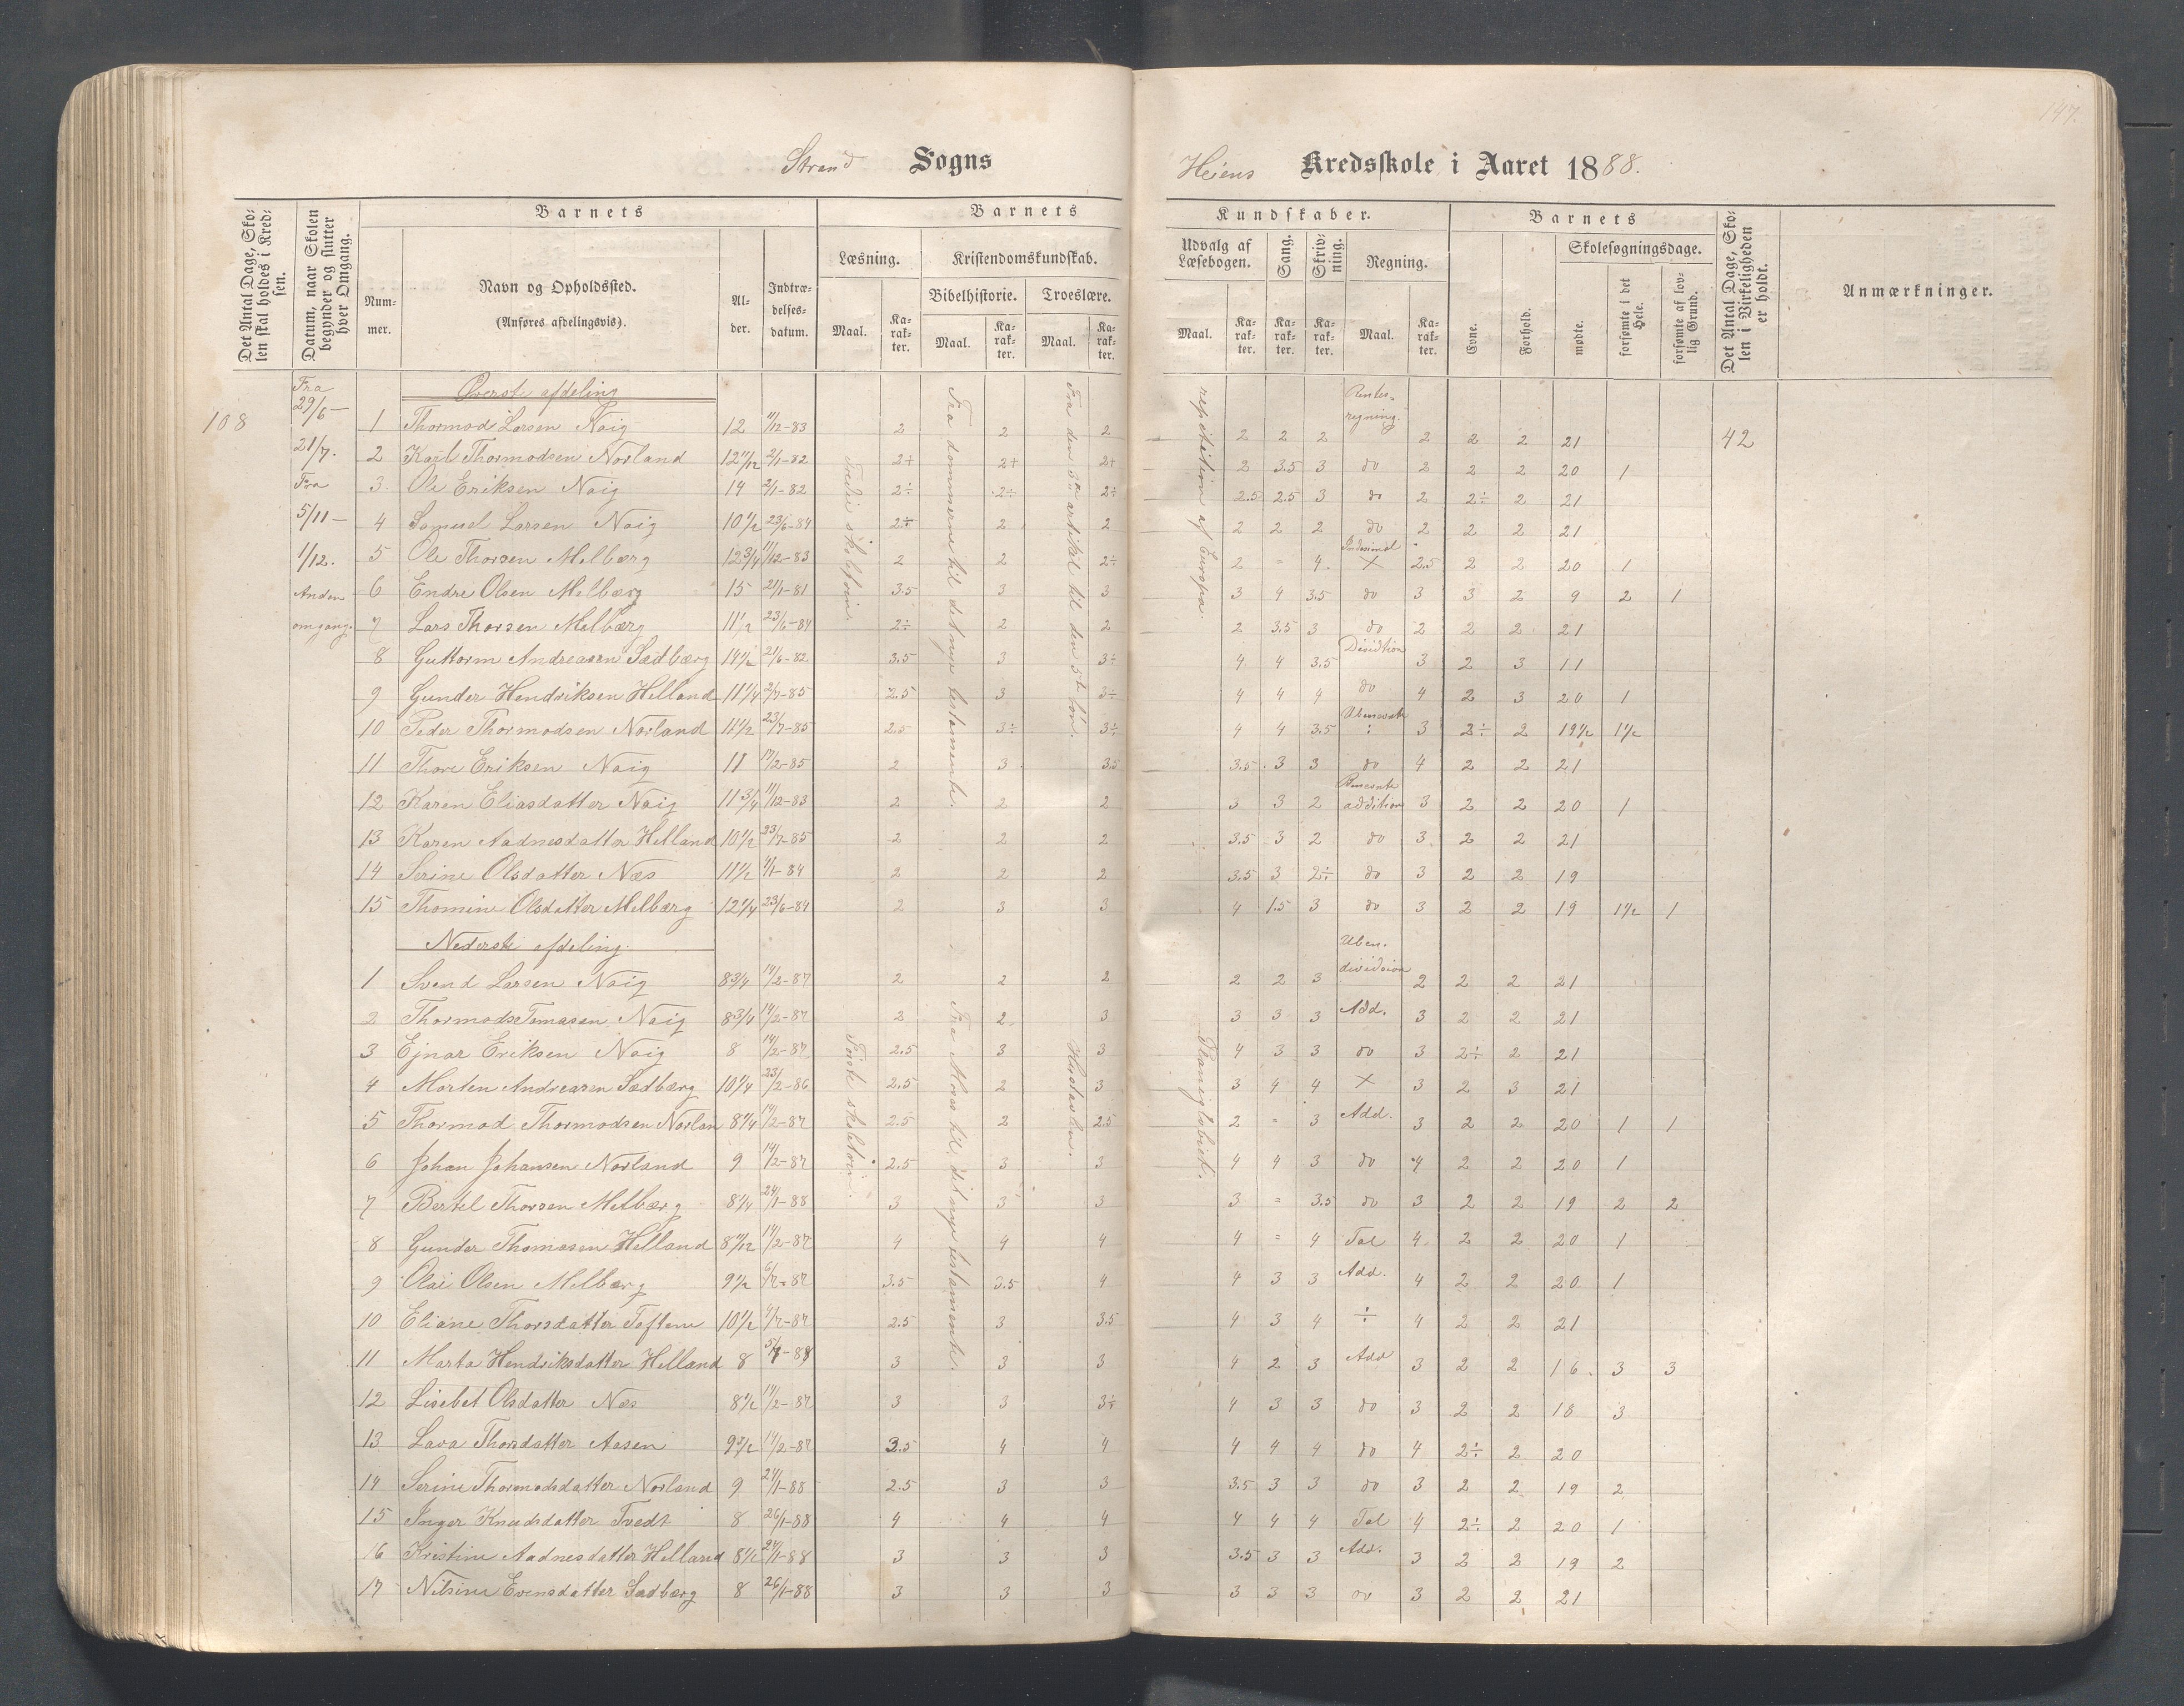 147.
Strand Sogns
Heiens Kredsskole i Aaret 1888.
Det Antal Dage, Skolen skal holdes i Kredsen.
Datum, naar Skolen begynder og slutter hver Omgang.
Barnets
Nummer.
Navn og Opholdssted.
(Anføres afdelingsvis).
Alder.
Indtrædelsesdatum.
Barnets
Læsning.
Kristendomskundskab.
Bibelhistorie.
Troeslære.
Maal.
Karakter.
Maal.
Karakter.
Maal.
Karakter.
Kundskaber.
Udvalg af Læsebogen.
Sang.
Skrivning.
Regning.
Maal.
Karakter.
Karakter.
Karakter.
Maal.
Karakter.
Barnets
Evne.
Forhold.
Skolesøgningsdage.
mødte.
forsømte i det Hele.
forsømte af lovlig Grund.
Det Antal Dage, Skolen i Virkeligheden er holdt.
Anmærkninger.
108
Fra 29/6 - 21/7.
Fra 5/11 - 1/12.
Anden omgang.
42
Tredie skoletrin
Fra dommerne til det nye testamente.
Fra den 3die artikel til den 5te bøn.
repetition af Europa.
Øverste afdeling
Rentesregning.
1 Thormod Larsen Naig 12 11/12-83 2 2 2 2 2 2 2 2 2 21
2 Karl Thormodsen Norland 12 11/12 2/1-82 2+ 2+ 2+ 2 3.5 3 do 2 2 2 20 1
3 Ole Eriksen Naig 14 2/1-82 2÷ 2÷ 2÷ 2.5 2.5 3 do 2 2÷ 2 21
4 Samuel Larsen Naig 10 1/2 23/6-84 2÷ 2 2 2 2 2 do 2 2 2 21
5 Ole Thorsen Melbærg 12 3/4 11/12-83 2 2 2÷ 2 = 4 × 2.5 2 2 20 1
6 Endre Olsen Melbærg 15 21/1-81 3.5 3 3 3 4 3.5 do 3 3 2 9 2 1
7 Lars Thorsen Melbærg 11 1/2 23/6-84 2÷ 2 2 2 3.5 3 do 2 2 2 21
8 Guttorm Andreasen Sædbærg 14 1/2 21/6-82 3.5 3 3÷ 4 4 3.5 Dividtion 3 2 3 11
9 Gunder Hendriksen Helland 11 1/4 2/7-85 2.5 3 3÷ 4 4 4 do 4 2 3 20 1
10 Peder Thormodsen Norland 11 1/2 23/7-85 2.5 3÷ 3÷ 4 4 3.5 Ubenevnte : 3 2÷ 2 19 1/2 1 1/2
11 Thore Eriksen Naig 11 14/2-85 2 3 3.5 3.5 3 3 do 4 2 2 21
12 Karen Eliasdatter Naig 11 3/4 11/12-83 2 2 2 3 3 2 Benevnte addition 3 2 2 20 1
13 Karen Aadnesdatter Helland 10 1/2 23/7-85 2 2 2 3.5 3 2 do 3 2 2 21
14 Serine Olsdatter Næs 11 1/2 4/1-84 2 2 2 3.5 3 2÷ do 3 2 2 19
15 Thomine Olsdatter Melbærg 12 1/4 23/6-84 2 3 3 4 1.5 3 do 3 2 2 19 1 1/2 1
Nederste afdeling.
Første skoletrin.
Fra Moses til det nye testamente.
Hustavlen.
Planiglobiet.
1 Svend Larsen Naig 8 3/4 14/2-87 2 2 2 2 2 3 Uben. dividsion 2 2 2 21
2 Thormods Tomasen Naig 8 3/4 14/2-87 2 2 3 3 3 3 Add. 3 2 2 21
3 Ejnar Eriksen Naig 8 14/2-87 2.5 3 3 4 3 3 do 3 2÷ 2 21
4 Morten Andreasen Sædbærg 10 1/4 23/2-86 2.5 2 3 3 4 4 × 3 2 3 21
5 Thormod Thormodsen Norlan 8 1/4 14/2-87 2.5 2 2.5 2 = 3 Add. 3 2 2 20 1 1
6 Johan Johansen Norland 9 14/2-87 2.5 3 3 4 4 3 do 4 2 2 20 1
7 Bertel Thorsen Melbærg 8 1/4 24/1-88 3 3 3 3 = 3.5 do 3 2 2 19 2 2
8 Gunder Thomasen Helland 8 11/12 14/2-87 4 4 4 4 = 4 Tal 4 2 2 20 1
9 Olai Olsen Melbærg 9 1/2 6/7-87 3.5 3.5 4 4 3 3 Add. 4 2 2 20 1
10 Eliane Thorsdatter Toftene 10 1/2 4/7-87 2.5 3 3.5 4 3 4 ÷ 4 2 2 21
11 Marta Hendriksdatter Helland 8 3 3 3 4 2 3 Add 3 2 2 16 3 3
12 Lisebet Olsdatter Næs 8 1/2 14/2-87 3 3 3÷ 4 3 3 do 3 2 2 18 3
13 Lava Thorsdatter Aasen 9 1/2 14/2-87 3.5 4 4 4 4 4 do 4 2÷ 2 20
14 Serine Thormodsdatter Norland 9 24/1-88 2.5 3 3 3.5 3 3 do 3 2 2 19 2
15 Inger Knudsdatter Tvedt 8 26/1-88 4 4 4 4 4 4 Tal 4 2÷ 2 20 1
16 Kristine Aadnesdatter Helland 8 1/2 24/1-88 3 3 3 3.5 3 3 Add. 3 2 2 19 2
17 Nilsine Evensdatter Sædbærg 8 26/1-88 3 3 3 3 3 3 do 3 2 2 21